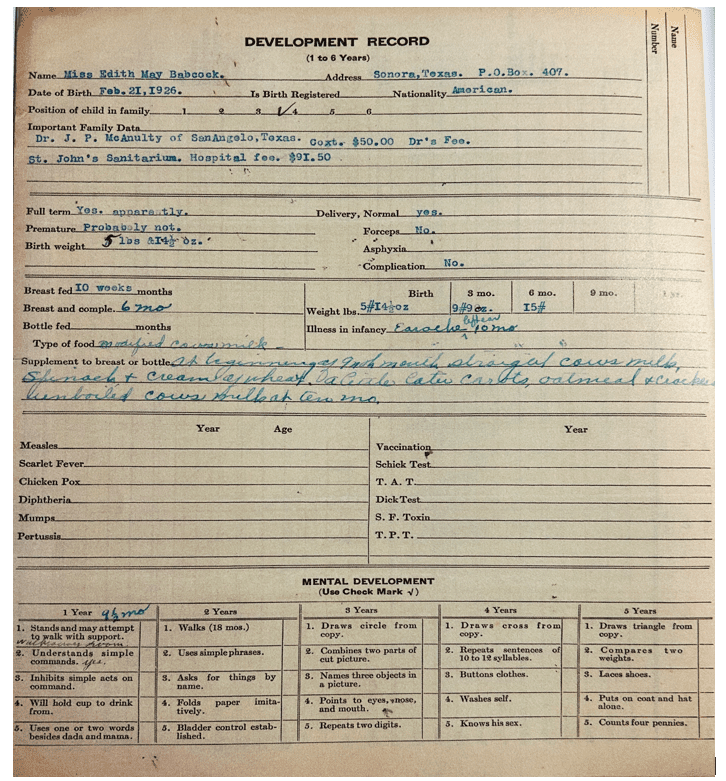 DEVELOPMENT RECORD
(1 to 6 Years)
Number
Name
Name Miss Edith May Babcock. Address Sonora, Texas. P.O.Box. 407.
Date of Birth Feb. 21, 1926. Is Birth Registered Nationality American.
Position of child in family 1 2 3 √ 4 5 6
Important Family Data
Dr. J. P. McAnulty of SanAngelo, Texas. Coxt. $50.00 Dr's Fee.
St. John's Sanitarium. Hospital fee. $91.50
Full term Yes. apparently. Delivery, Normal yes.
Premature Probaboly not. Forceps No.
Birth weight 5 lbs &14½ oz. Asphyxia
Complication No.
Breast fed 10 weeks months Birth 3 mo. 6 mo. 9 mo. 1 yr.
Breast and comple. 6 mo Weight lbs. 5#14½oz 9#9oz. 15#
Bottle fed months Illness in infancy Earache 10 mo
Type of food modified cows milk
Supplement to breast or bottle at beginning of month straight cows milk,
Spinach & cream of wheat, Later carrots, oatmeal &
unboiled cows milk at ten mo.
Year Age Year
Measles Vaccination
Scarlet Fever Schick Test
Chicken Pox T. A. T.
Diphtheria Dick Test
Mumps S. F. Toxin
Pertussis T. P. T.
MENTAL DEVELOPMENT
(Use Check Mark √)
1 Year 9½ mo
1. Stands and may attempt to walk with support.
2. Understands simple commands. yes.
3. Inhibits simple acts on command.
4. Will hold cup to drink from.
5. Uses one or two words besides dada and mama.
2 Years
1. Walks (18 mos.)
2. Uses simple phrases.
3. Asks for things by name.
4. Folds paper imitatively.
5. Bladder control established.
3 Years
1. Draws circle from copy.
2. Combines two parts of cut picture.
3. Names three objects in a picture.
4. Points to eyes, nose, and mouth.
5. Repeats two digits.
4 Years
1. Draws cross from copy.
2. Repeats sentences of 10 to 12 syllables.
3. Buttons clothes.
4. Washes self.
5. Knows his sex.
5 Years
1. Draws triangle from copy.
2. Compares two weights.
3. Laces shoes.
4. Puts on coat and hat alone.
5. Counts four pennies.